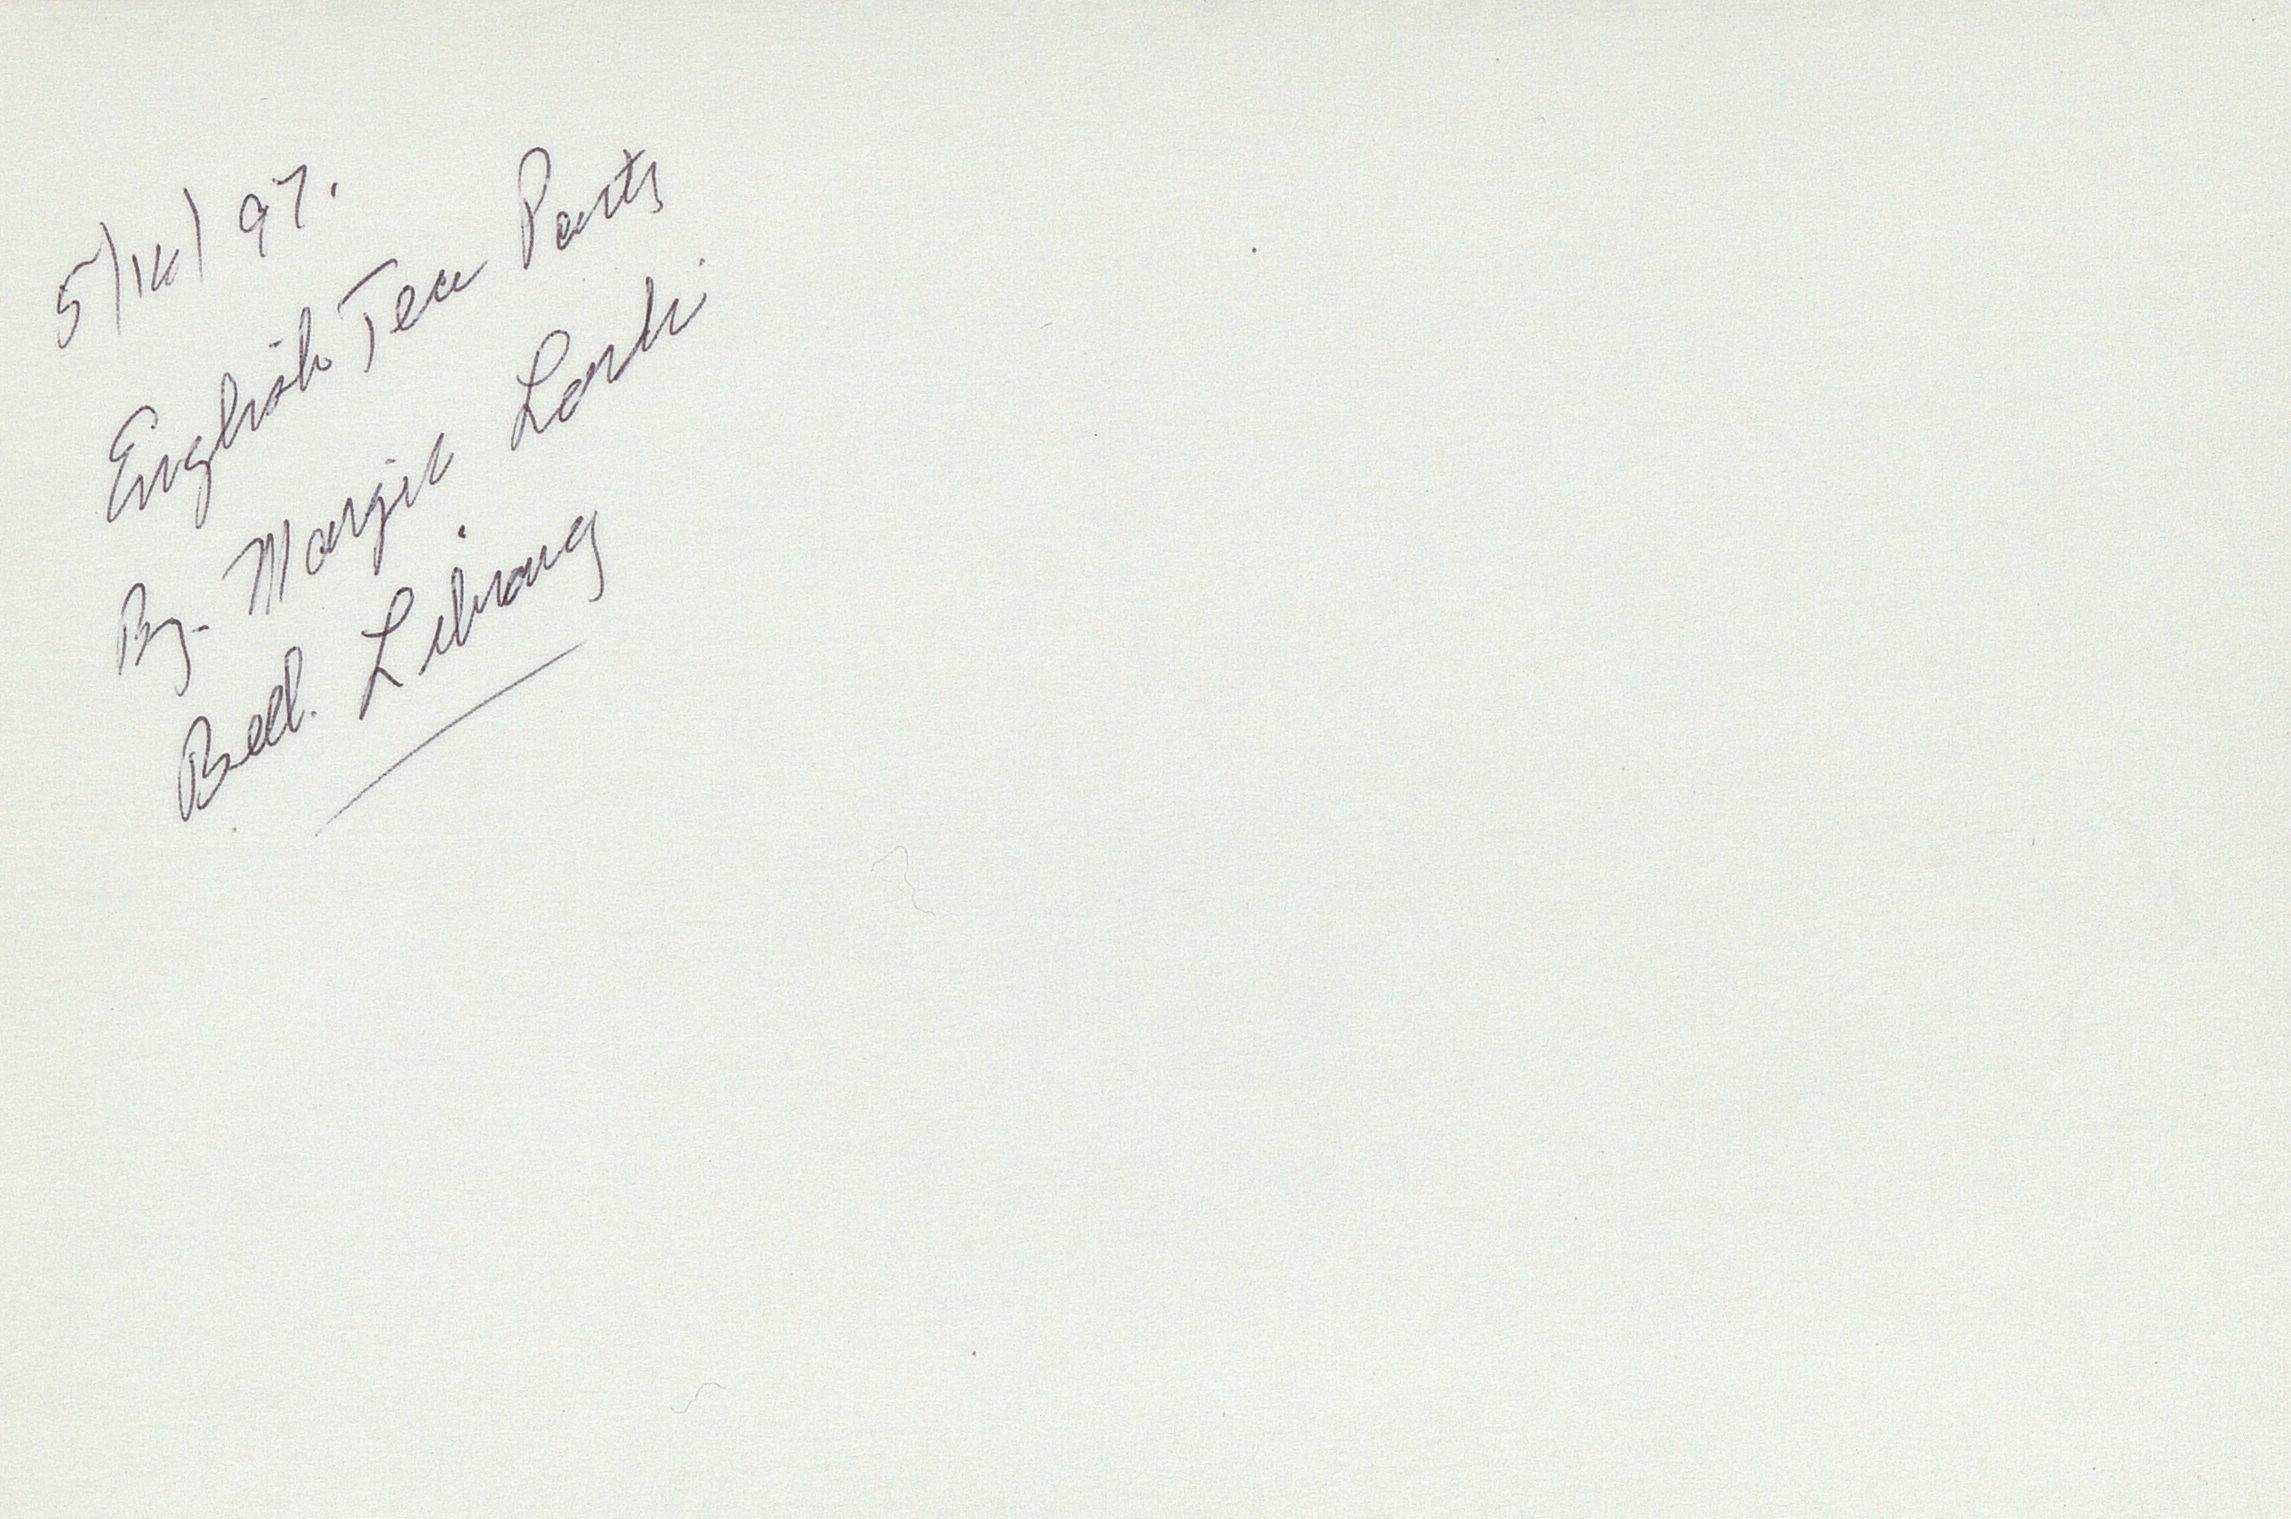 5/14/97.
English Tea Party
By. Margie
Bell. Library